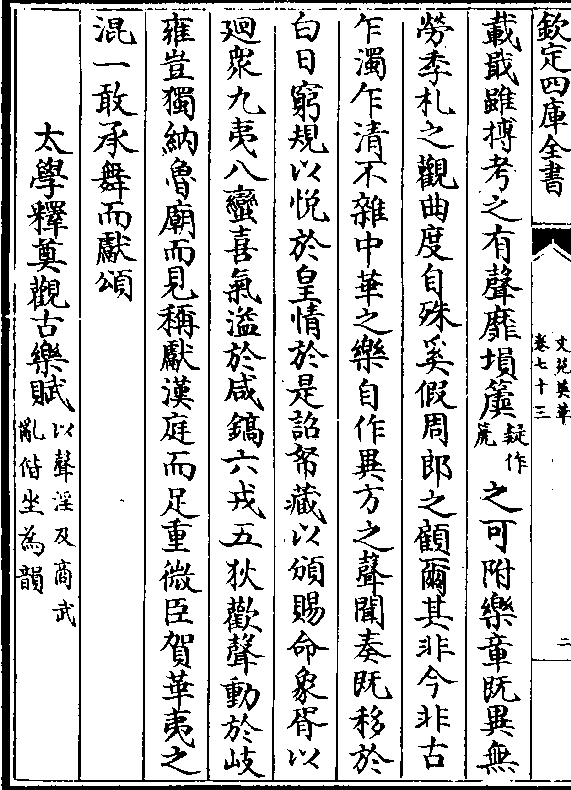 欽定四庫全書
文苑英華
卷七十三
二
載戢雖搏考之有聲靡塤簴疑作篪之可附樂章既異無
勞季札之觀曲度自殊奚假周郎之顧爾其非今非古
乍濁乍清不雜中華之樂自作異方之聲聞奏既移於
白日窮規以悅於皇情於是詔帑藏以頒賜命象胥以
廻衆九夷八蠻喜氣溢於咸鎬六戎五狄歡聲動於岐
雍豈獨納魯廟而見稱獻漢庭而足重微臣賀華夷之
混一敢承舞而獻頌
太學釋奠觀古樂賦以聲淫及商武亂偕坐為韻